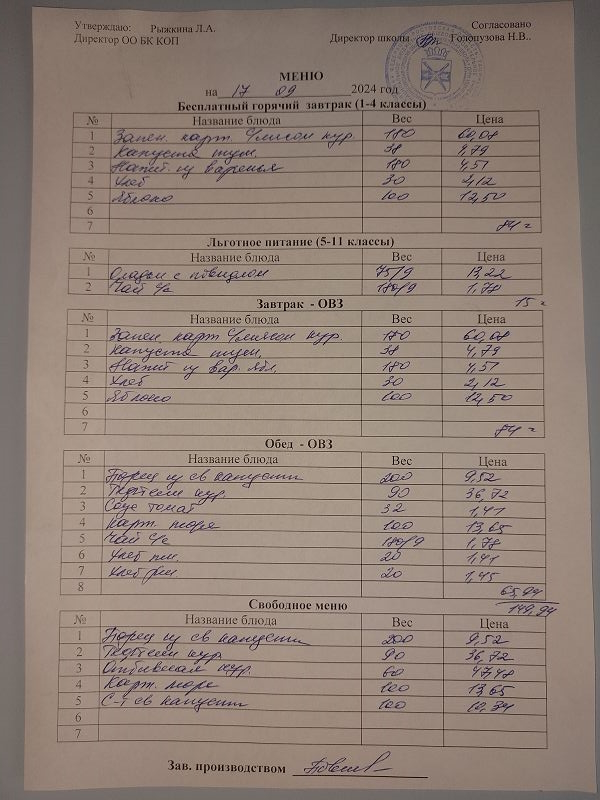 Утверждаю: Рыжкина Л.А. Согласовано
Директор ОО БК КОП Директор школы Голопузова Н.В..
МЕНЮ
на 17 09 2024 год
Бесплатный горячий завтрак (1-4 классы)
№ Название блюда Вес Цена
1 Запек. карт. с/мясом кур. 180 60,08
2 Капуста туш. 38 4,79
3 Напит. из варенья 180 4,51
4 Хлеб 30 2,12
5 Яблоко 100 12,50
6
7 84 =
Льготное питание (5-11 классы)
№ Название блюда Вес Цена
1 Оладьи с повидлом 75/9 13,22
2 Чай с/с 180/9 1,78
15 =
Завтрак - ОВЗ
№ Название блюда Вес Цена
1 Запек. карт. с/мясом кур. 180 60,08
2 Капуста туш. 38 4,79
3 Напит. из вар. ябл. 180 4,51
4 Хлеб 30 2,12
5 Яблоко 100 12,50
6
7 84 =
Обед - ОВЗ
№ Название блюда Вес Цена
1 Борщ из св капусты 200 9,52
2 Тефтели кур. 90 36,72
3 Соус томат 32 1,41
4 Карт. пюре 100 13,65
5 Чай с/с 180/9 1,78
6 Хлеб пш. 20 1,41
7 Хлеб рж. 20 1,45
8 65,94
149,94
Свободное меню
№ Название блюда Вес Цена
1 Борщ из св капусты 200 9,52
2 Тефтели кур. 90 36,72
3 Отбивная кур. 60 47,48
4 Карт. пюре 100 13,65
5 С-т св капусты 100 10,34
6
7
Зав. производством